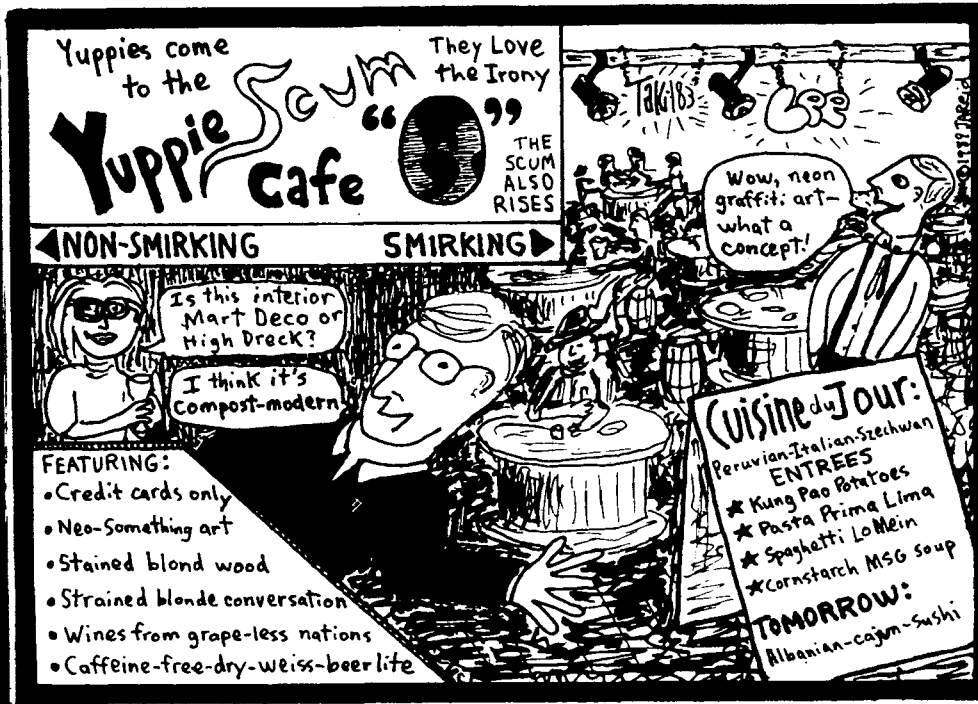 Yuppies come
to the
Yuppie Scum
Cafe
They Love
the Irony
“ ”
THE
SCUM
ALSO
RISES
NON-SMIRKING
SMIRKING
TAKI 183
LEE
©1989 J.A.Reid
Wow, neon
graffiti art—
what a
concept!
Is this interior
Mart Deco or
High Dreck?
I think it's
Compost-modern
FEATURING:
• Credit cards only
• Neo-Something art
• Stained blond wood
• Strained blonde conversation
• Wines from grape-less nations
• Caffeine-free-dry-weiss-beer lite
Cuisine du Jour:
Peruvian-Italian-Szechwan
ENTREES
★ Kung Pao Potatoes
★ Pasta Prima Lima
★ Spaghetti Lo Mein
★ Cornstarch MSG soup
TOMORROW:
Albanian-cajun-sushi